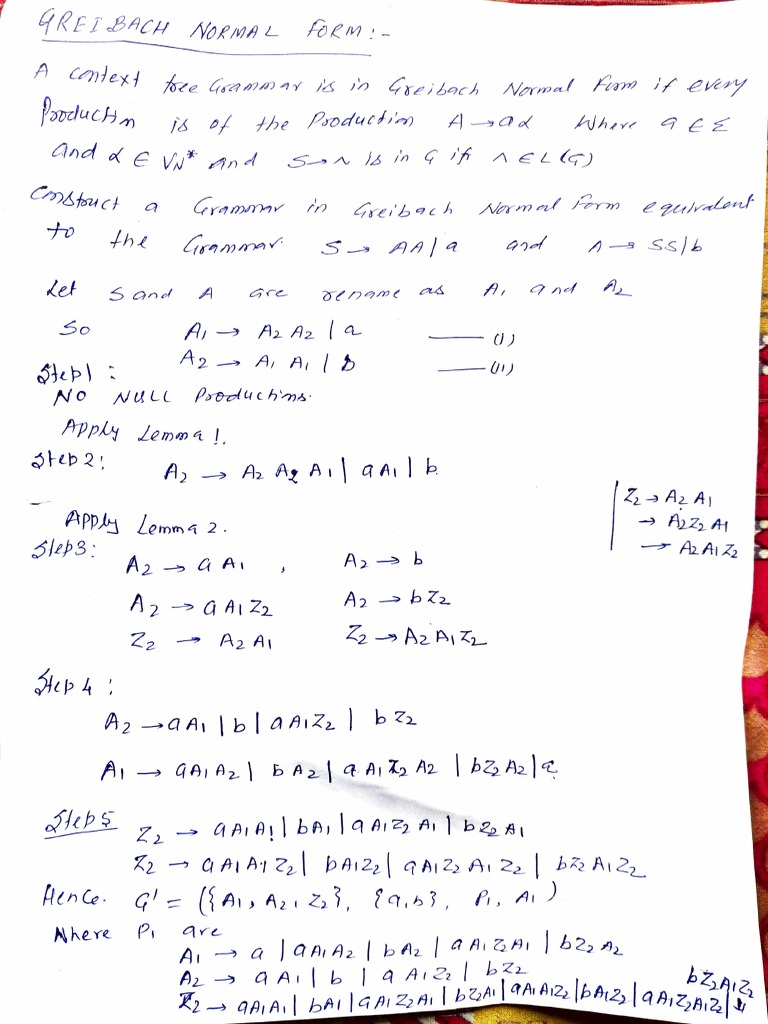 GREIBACH NORMAL FORM:-
A context free Grammar is in Greibach Normal Form if every
Production is of the Production A → aα Where a ∈ Σ
and α ∈ VN* and S → Λ is in G if Λ ∈ L(G)
Construct a Grammar in Greibach Normal Form equivalent
to the Grammar. S → AA | a and A → SS | b
Let S and A are rename as A1 and A2
So A1 → A2 A2 | a —— (I)
A2 → A1 A1 | b —— (II)
Step1:
NO NULL Productions.
Apply Lemma 1.
Step2: A2 → A2 A2 A1 | a A1 | b
Z2 → A2 A1
→ A2 Z2 A1
→ A2 A1 Z2
Apply Lemma 2.
Step3:
A2 → a A1 , A2 → b
A2 → a A1 Z2 A2 → b Z2
Z2 → A2 A1 Z2 → A2 A1 Z2
Step 4:
A2 → a A1 | b | a A1 Z2 | b Z2
A1 → a A1 A2 | b A2 | a A1 Z2 A2 | b Z2 A2 | a
Step 5
Z2 → a A1 A1 | b A1 | a A1 Z2 A1 | b Z2 A1
Z2 → a A1 A1 Z2 | b A1 Z2 | a A1 Z2 A1 Z2 | b Z2 A1 Z2
Hence. G' = ({A1, A2, Z2}, {a, b}, P1, A1)
Where P1 are
A1 → a | a A1 A2 | b A2 | a A1 Z2 A1 | b Z2 A2
A2 → a A1 | b | a A1 Z2 | b Z2
b Z2 A1 Z2
Z2 → a A1 A1 | b A1 | a A1 Z2 A1 | b Z2 A1 | a A1 A1 Z2 | b A1 Z2 | a A1 Z2 A1 Z2 |